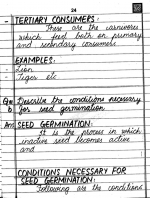 24
TERTIARY CONSUMERS:
These are the carnivores
which feed both on primary
and secondary consumers
EXAMPLES:
- Lion
- Tiger etc
Describe the conditions necessary
b for seed germination
Ans SEED GERMINATION:
It is the process in which
inactive seed becomes active
and
CONDITIONS NECESSARY FOR
SEED GERMINATION:
Following are the conditions